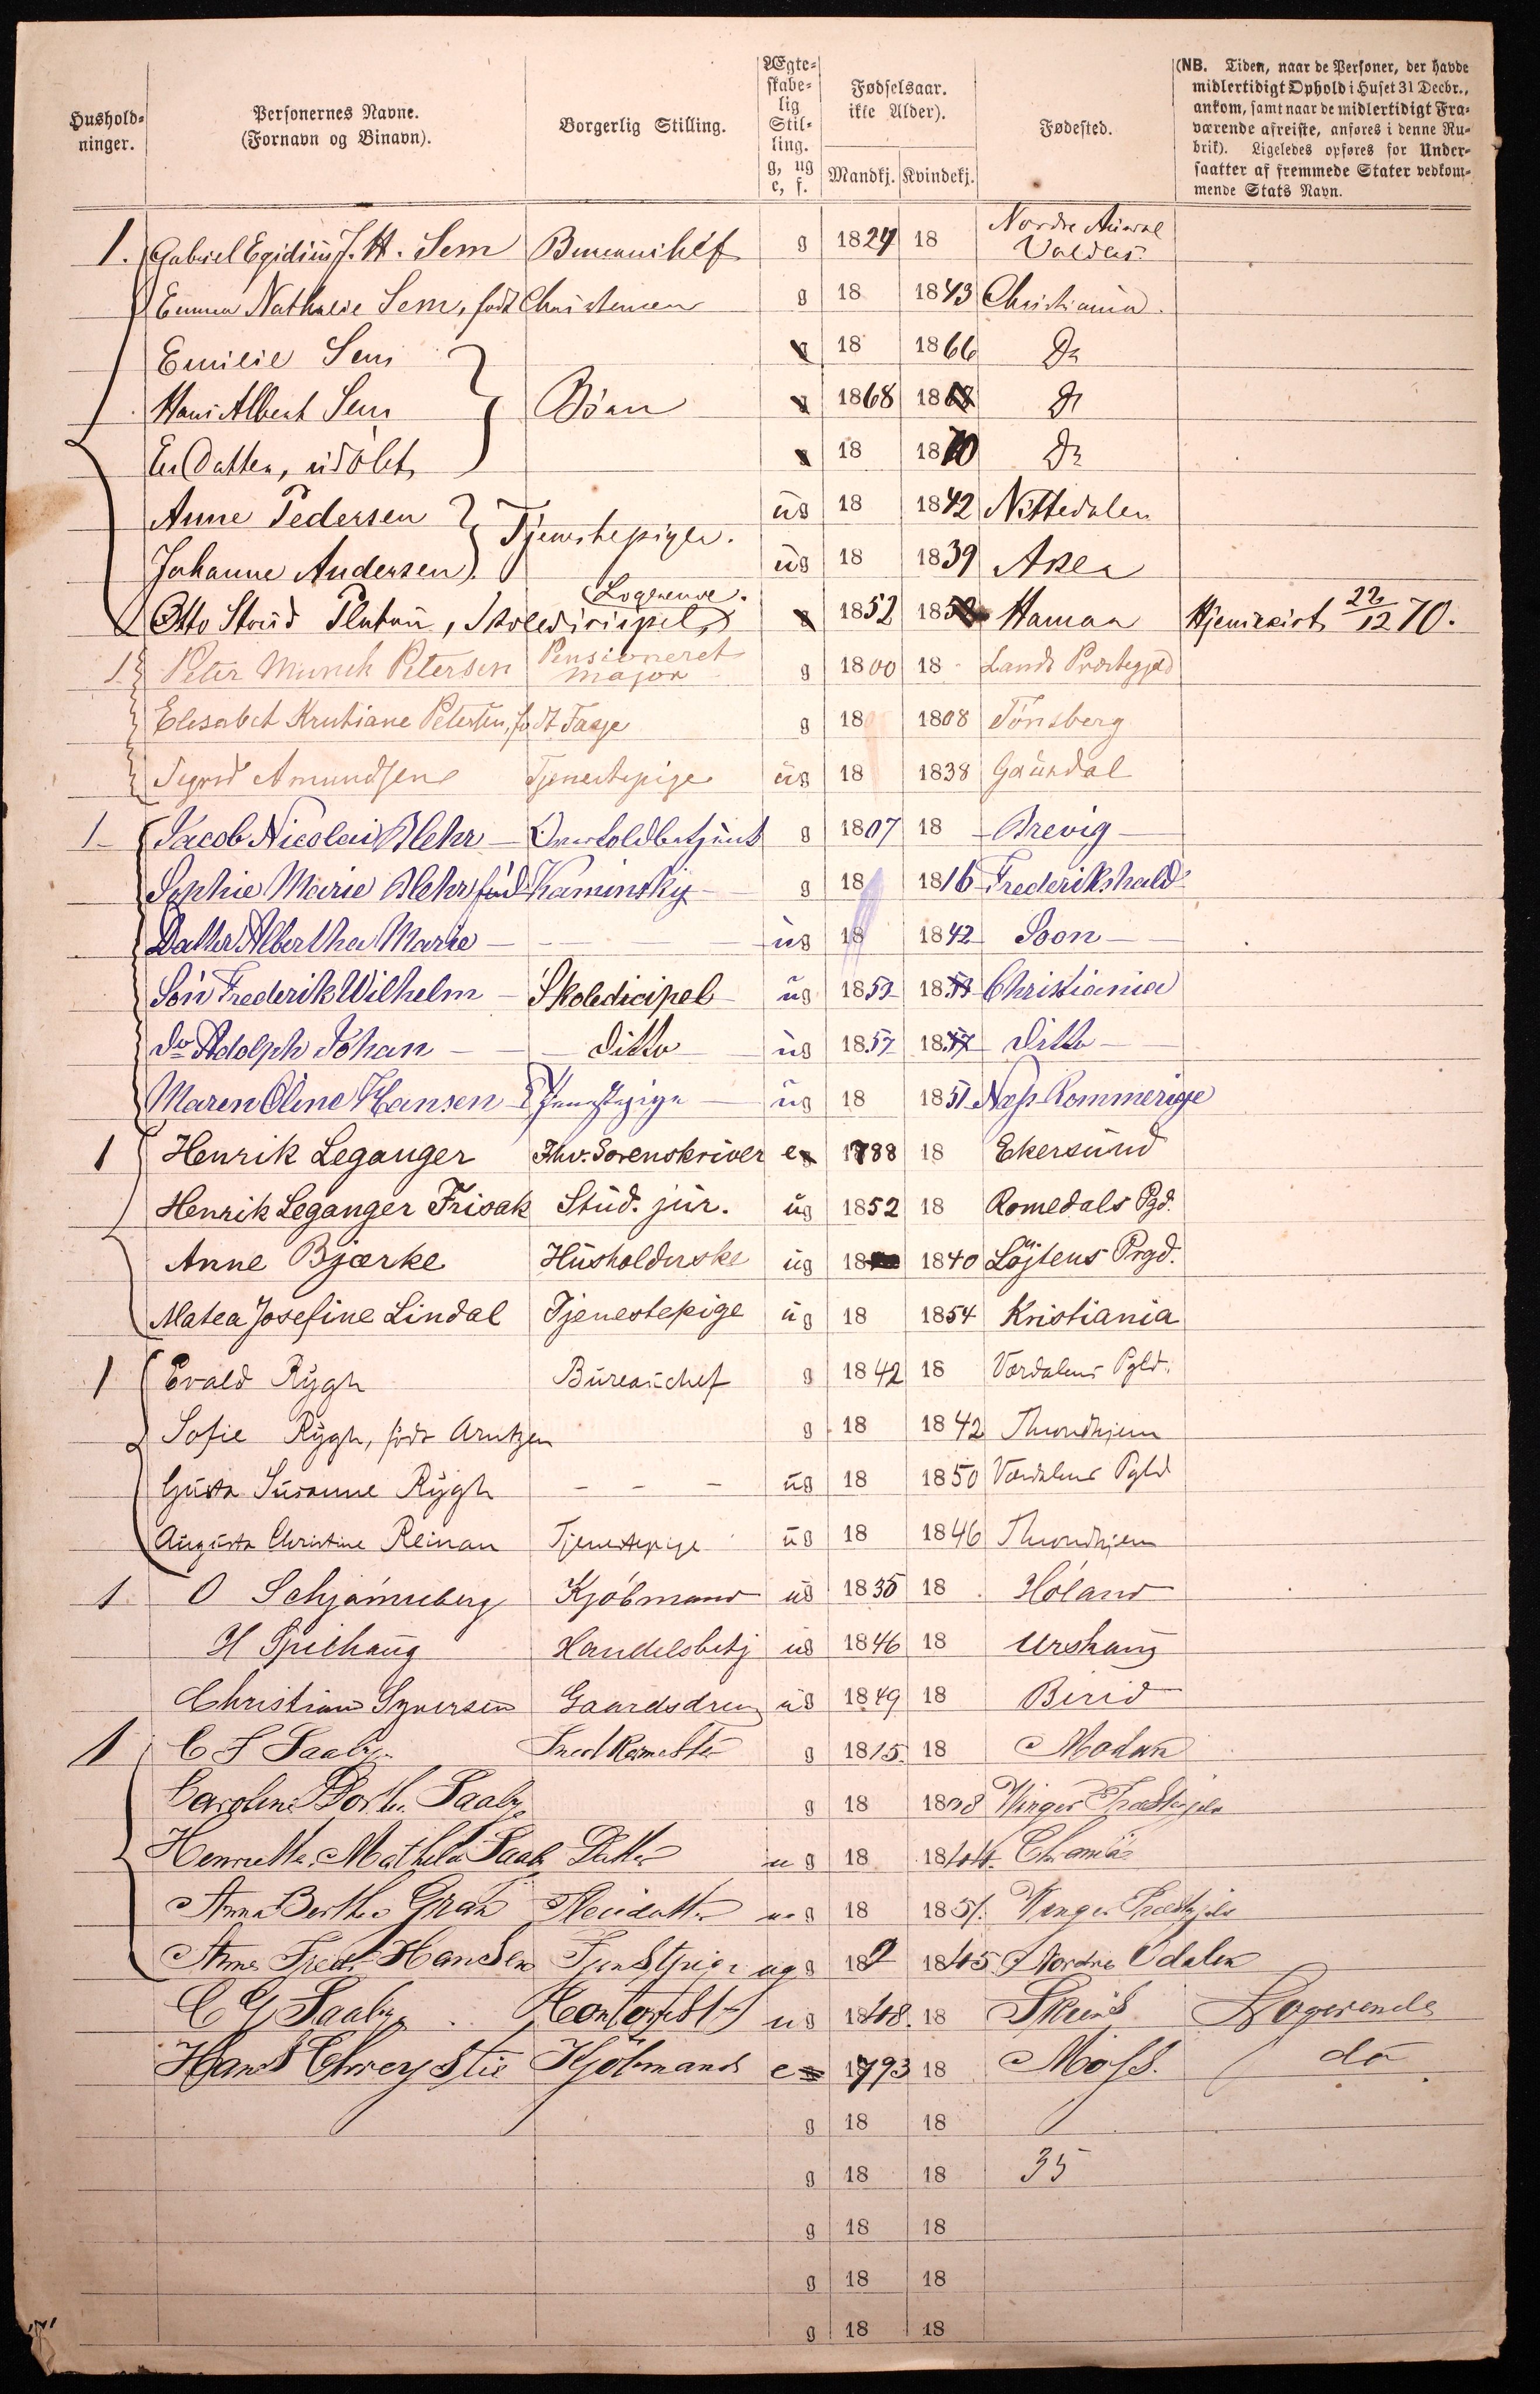 Hushold-
ninger.
Personernes Navne.
(Fornavn og Binavn).
Borgerlig Stilling.
Ægte-
skabe-
lig
Stil-
ling.
g, ug
e, f.
Fødselsaar.
ikke Alder).
Mandkj. Kvindekj.
Fødested.
(NB. Tiden, naar de Personer, der havde
midlertidigt Ophold i Huset 31 Decbr.,
ankom, samt naar de midlertidigt Fra-
værende afreiste, anføres i denne Ru-
brik). Ligeledes opføres for Under-
saatter af fremmede Stater vedkom-
mende Stats Navn.
1. Gabriel Egidius J. H. Sem g 1824 18 Nordre
Valders
Emma Nathalie Sem, født Christensen g 18 1843 Christiania.
Emilie Sem 18 1866 Do
Hans Albert Sem Börn 1868 18 Do
En Datter, udöbt 18 1870 Do
Anne Pedersen Tjenestepiger. ug 18 1842 Nittedalen
Johanne Andersen ug 18 1839 Asker
Logerende.
Otto Stoud Platou, Skoledisipel 1852 18 Hamar Hjemreist 22/12 70.
1 Peter Munch Petersen Pensioneret
Major g 1800 18 Lands Præstegjæld
Elisabet Kristiane Petersen, født Fasje g 18 1808 Tönsberg
Sigrid Amundsen Tjenestepige ug 18 1838 Gausdal
1 Jacob Nicolai Blehr Overtoldbetjent g 1807 18 Brevig
Sophie Marie Blehr föd Kaminsky g 18 1816 Frederikshald
Datter Albertha Marie ug 18 1842 Soon
Sön Frederik Wilhelm Skoledicipel ug 1853 18 Christiania
do Adolph Johan ditto ug 1857 1857 ditto
Maren Oline Hansen Tjenestepige ug 18 1851 Næss Rommerige
1 Henrik Leganger Fhv. Sorenskriver e 1788 18 Ekersund
Henrik Leganger Frisak Stud. jur. ug 1852 18 Romedals Pgd.
Anne Bjærke Husholderske ug 18 1840 Løjtens Prgd.
Matea Josefine Lindal Tjenestepige ug 18 1854 Kristiania
1 Evald Rygh Bureauchef g 1842 18 Værdalens Pgld.
Sofie Rygh, född Arntzen g 18 1842 Throndhjem
Gusta Susanne Rygh - - - ug 18 1850 Værdalens Pgld
Augusta Christine Reinan Tjenestepige ug 18 1846 Throndhjem
1 O Schjønneberg Kjöbmand ug 1835 18 Höland
H Spilhaug Handelsbetj ug 1846 18 Urskaug
Christian Syversen Gaardsdreng ug 1849 18 Birid
1 C F Saaby g 1815 18 Modum
Caroline Dorth. Saaby g 18 18 Vinger Præstegjeld
Henriette Mathilde Saaby Datter ug 18 1844 Chania
Anna Berthe Gran Pleiedatter ug 18 1851. Vinger Præstegjeld
Anne Fredr. Hansen Tjenstpige ug 18 1845 Nordre Odalen
C G Saaby Contorist ug 1848. 18 Logerende
Hans Chrystie Kjöbmand e 1793 18 Moss. do
g 18 18
g 18 18 35
g 18 18
g 18 18
g 18 18